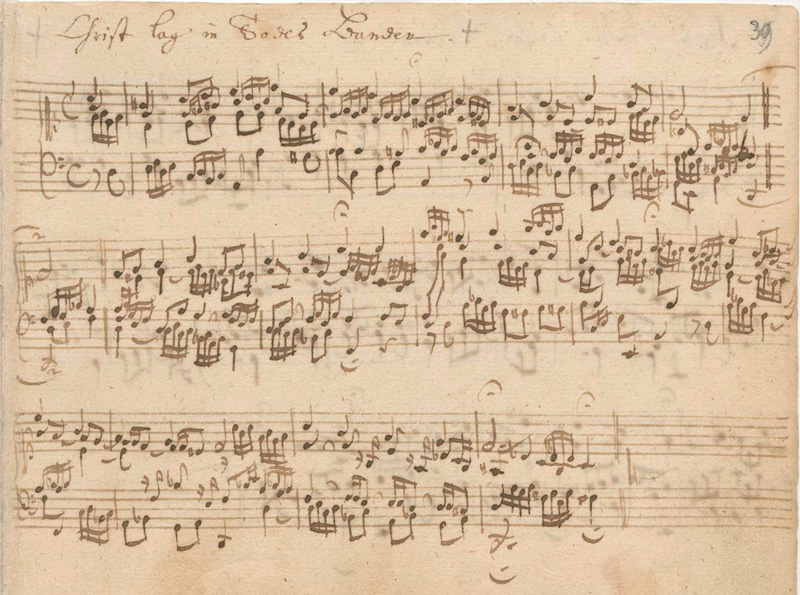 Christ lag in Todes Banden. 39